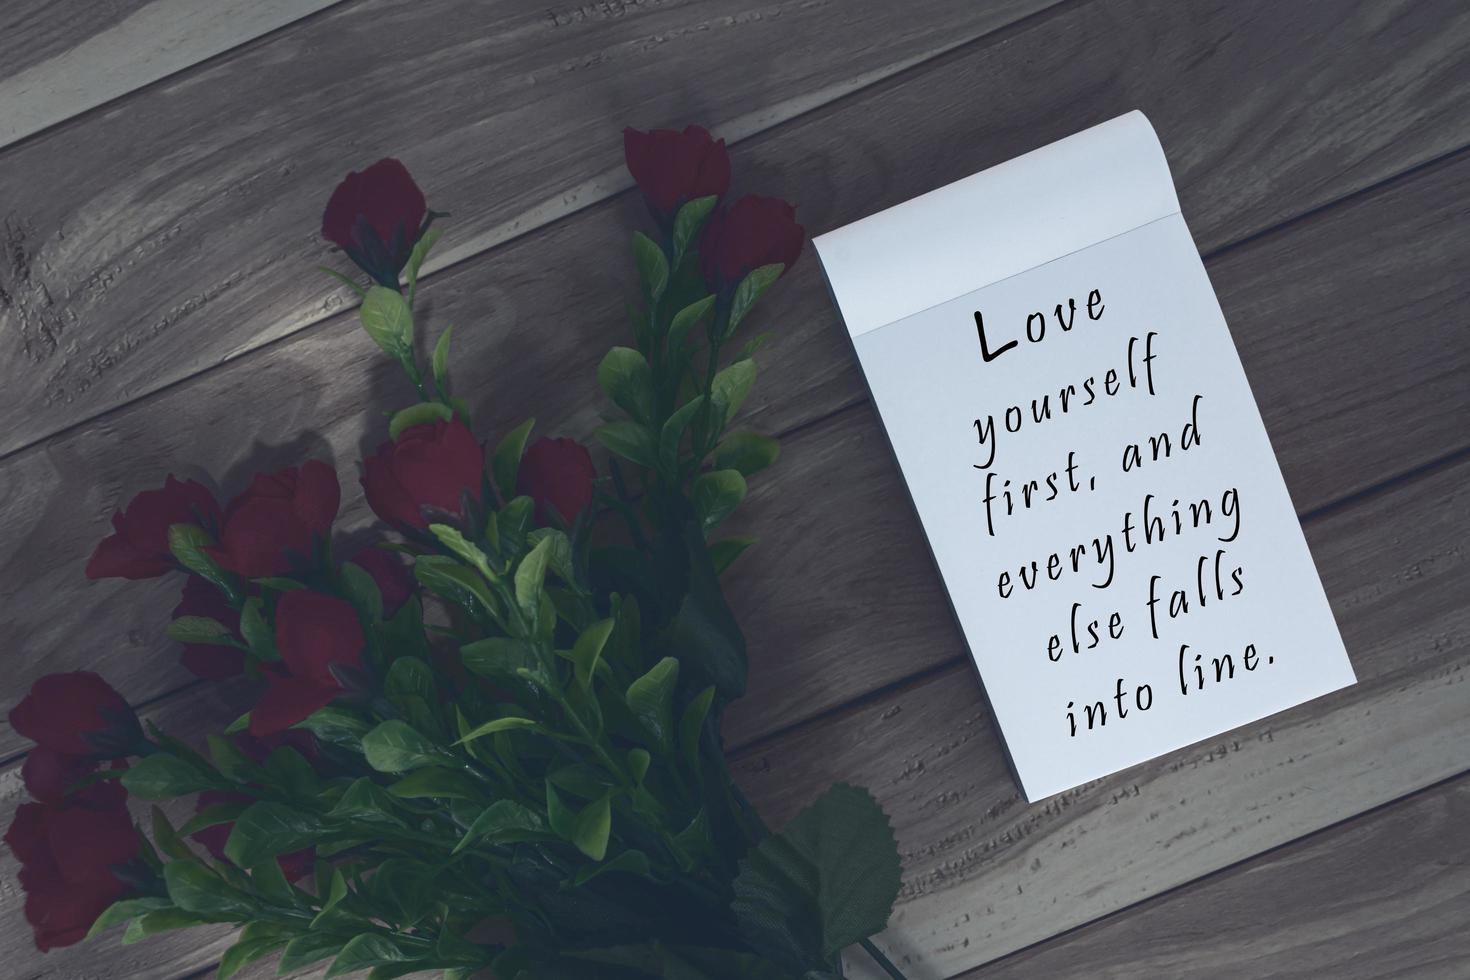 Love
yourself
first, and
everything
else falls
into line.